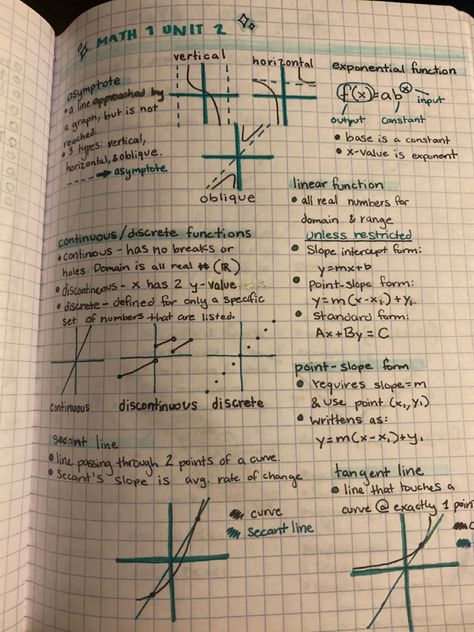 MATH 1 UNIT 2
vertical
horizontal
asymptote
• a line approached by
a graph, but is not
reached.
• 3 types: vertical,
horizontal, & oblique.
asymptote
oblique
exponential function
f(x)=ab^x
input
output
constant
• base is a constant
• x-value is exponent
linear function
• all real numbers for
domain & range
unless restricted
• Slope intercept form:
y=mx+b
• point-slope form:
y=m(x-x₁)+y₁
• standard form:
Ax+By=C
continuous/discrete functions
• continous - has no breaks or
holes. Domain is all real # (ℝ)
• discontinous - x has 2 y-value
• discrete - defined for only a specific
set of numbers that are listed.
continuous
discontinuous
discrete
point-slope form
• requires slope=m
& use point (x₁,y₁)
• writtens as:
y=m(x-x₁)+y₁
secant line
• line passing through 2 points of a curve.
• secant's slope is avg. rate of change
curve
secant line
tangent line
• line that touches a
curve @ exactly 1 point